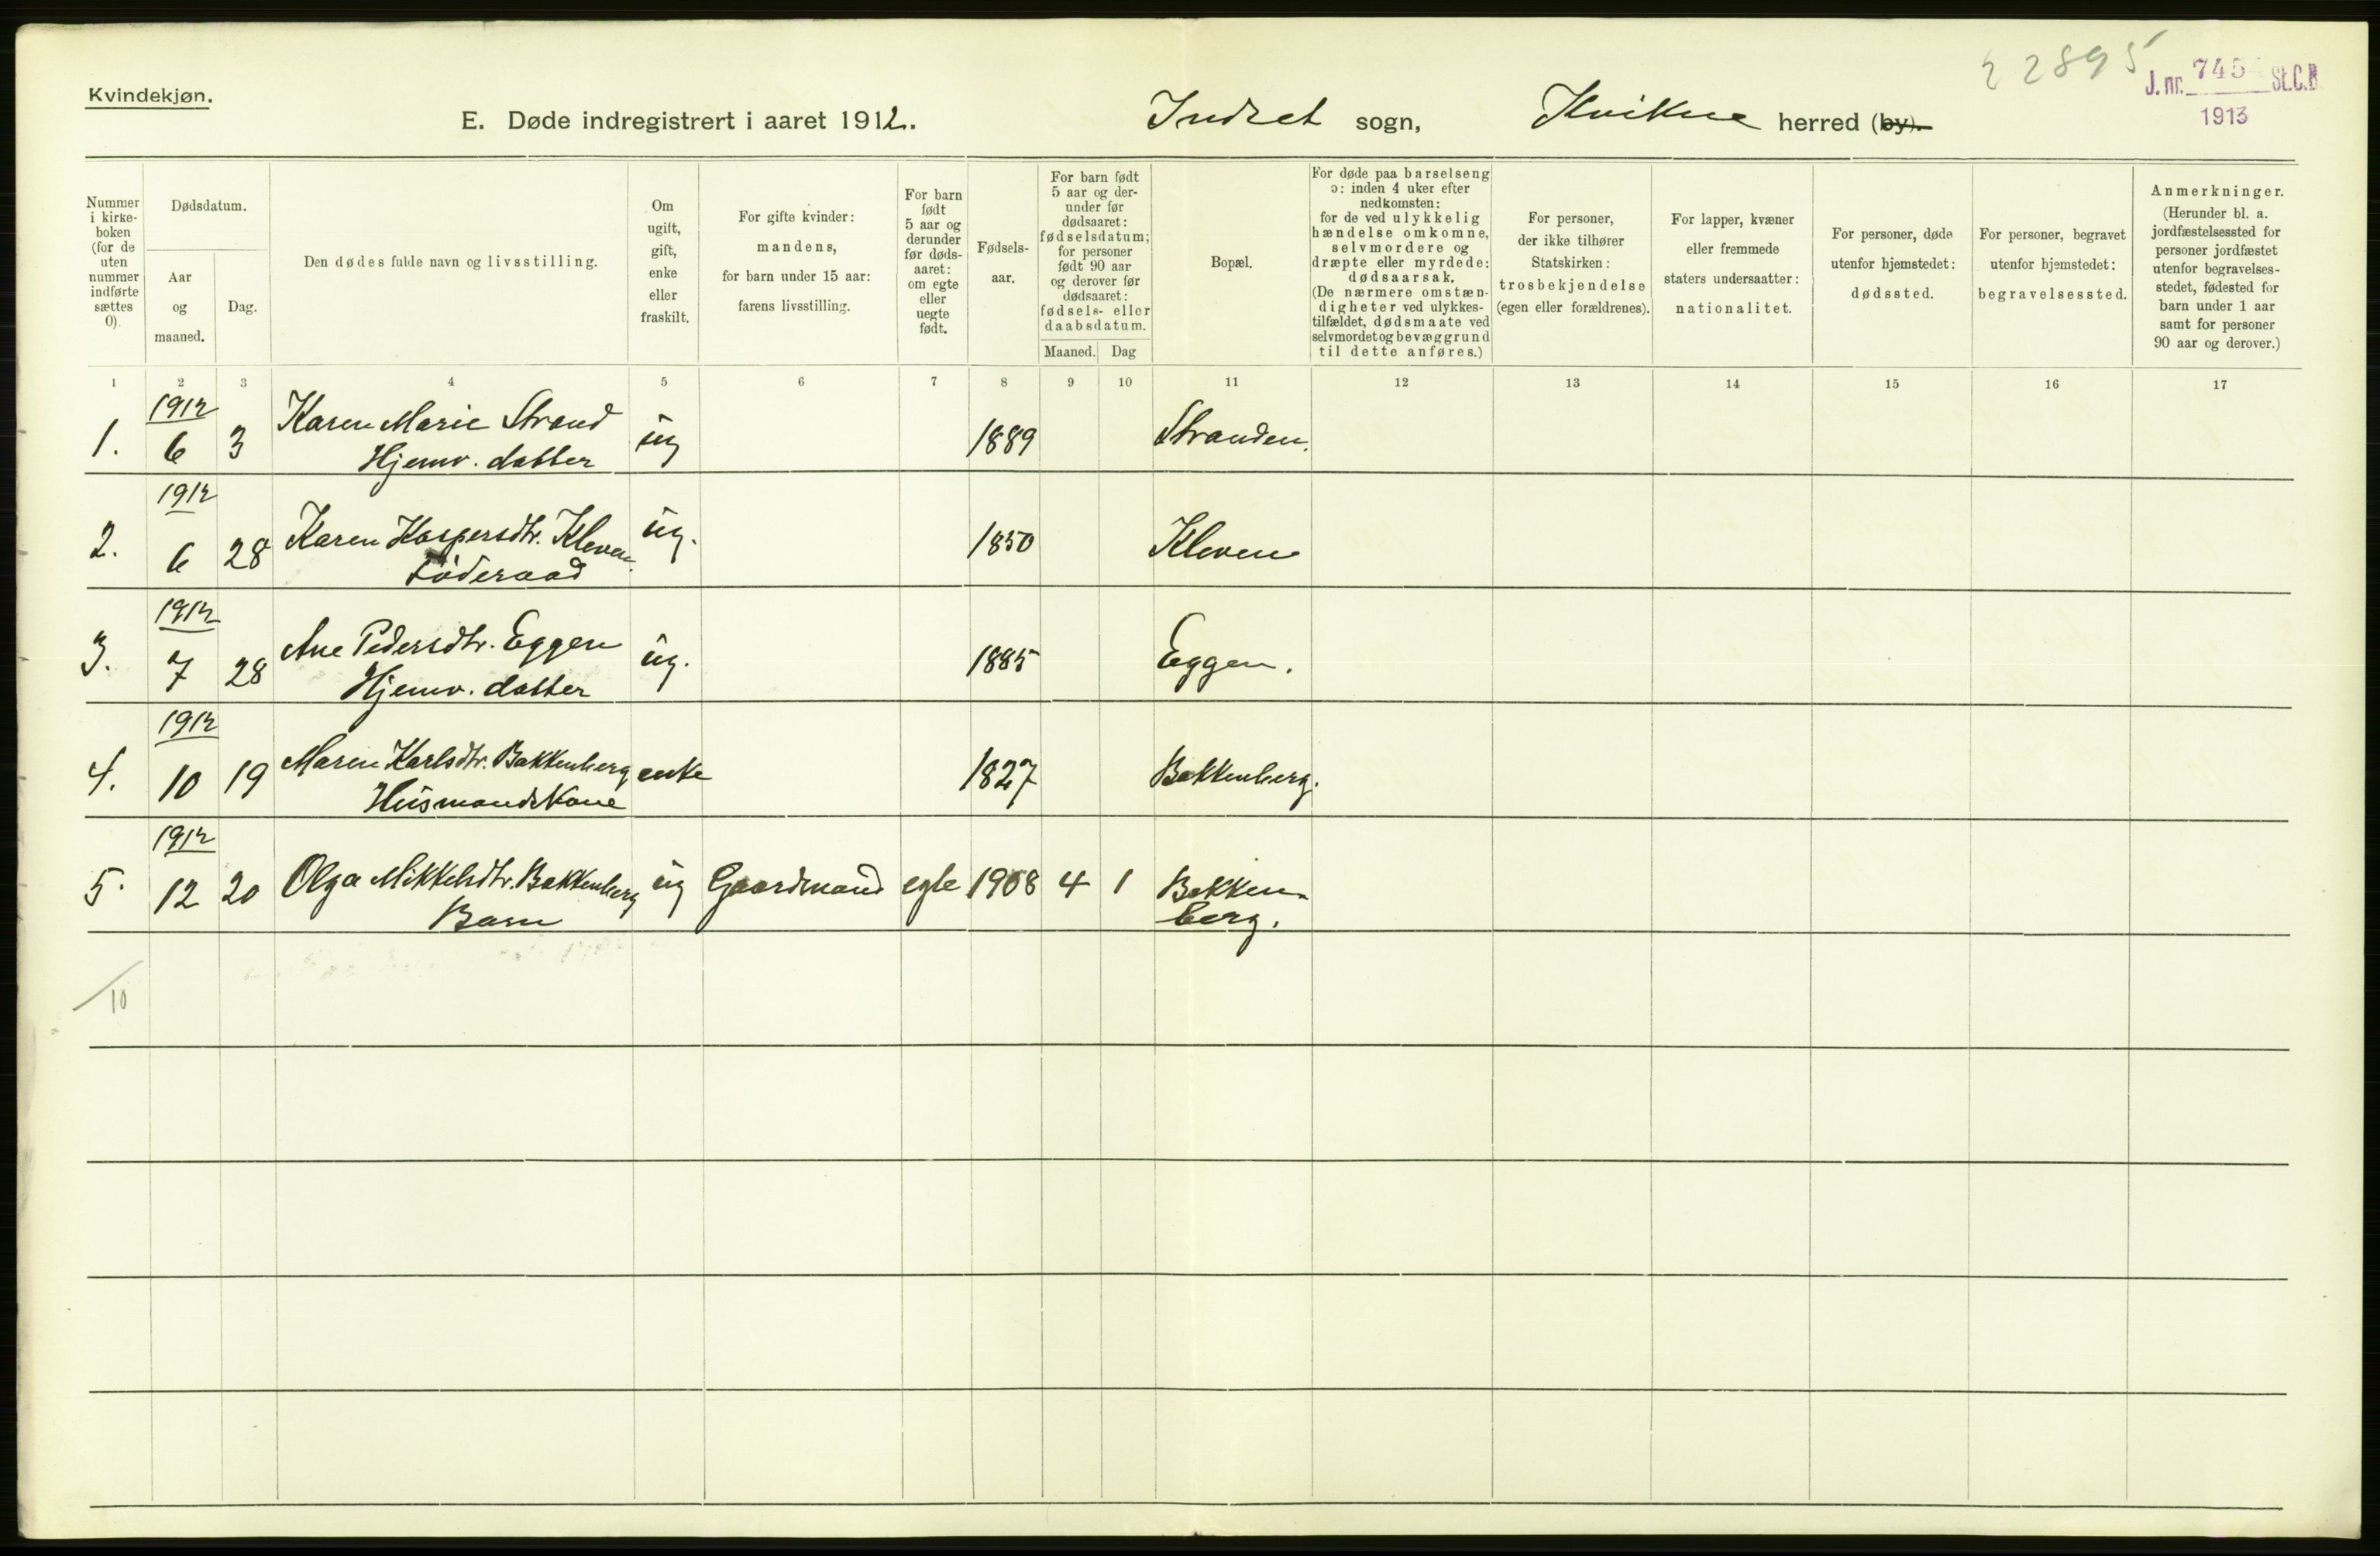 22895
J. nr. 7454 St.C.B.
1913
Kvindekjøn.
E. Døde indregistrert i aaret 1912. Indset sogn, Kvikne herred (by).
Nummer i kirke-boken (for de uten nummer indførte sættes 0).
Dødsdatum.
Aar og maaned.
Dag.
Den dødes fulde navn og livsstilling.
Om ugift, gift, enke eller fraskilt.
For gifte kvinder: mandens, for barn under 15 aar: farens livsstilling.
For barn født 5 aar og derunder før døds-aaret: om egte eller uegte født.
Fødsels-aar.
For barn født 5 aar og der-under før dødsaaret: fødselsdatum; for personer født 90 aar og derover før dødsaaret: fødsels- eller daabsdatum.
Maaned. Dag
Bopæl.
For døde paa barselseng ɔ: inden 4 uker efter nedkomsten; for de ved ulykkelig hændelse omkomne, selvmordere og dræpte eller myrdede: dødsaarsak. (De nærmere omstæn-digheter ved ulykkes-tilfældet, dødsmaate ved selvmordet og bevæggrund til dette anføres.)
For personer, der ikke tilhører Statskirken: trosbekjendelse (egen eller forældrenes).
For lapper, kvæner eller fremmede staters undersaatter: nationalitet.
For personer, døde utenfor hjemstedet: dødssted.
For personer, begravet utenfor hjemstedet: begravelsessted.
Anmerkninger. (Herunder bl. a. jordfæstelsessted for personer jordfæstet utenfor begravelses-stedet, fødested for barn under 1 aar samt for personer 90 aar og derover.)
1 2 3 4 5 6 7 8 9 10 11 12 13 14 15 16 17
1912
1. 6 3 Karen Marie Strand ug 1889 Stranden.
Hjemv. datter
1912
2. 6 28 Karen Kaspersdtr. Kleven. ug. 1850 Kleven
Föderaad
1912
3. 7 28 Ane Pedersdtr. Eggen ug. 1885 Eggen.
Hjemv. datter
1912
4. 10 19 Maren Karlsdtr. Bakkenberg enke 1827 Bakkenberg.
Husmandskone
1912
5. 12 20 Olga Mikkelsdtr. Bakkenberg ug Gaardmand egte 1908 4 1 Bakken-
Barn berg.
/10